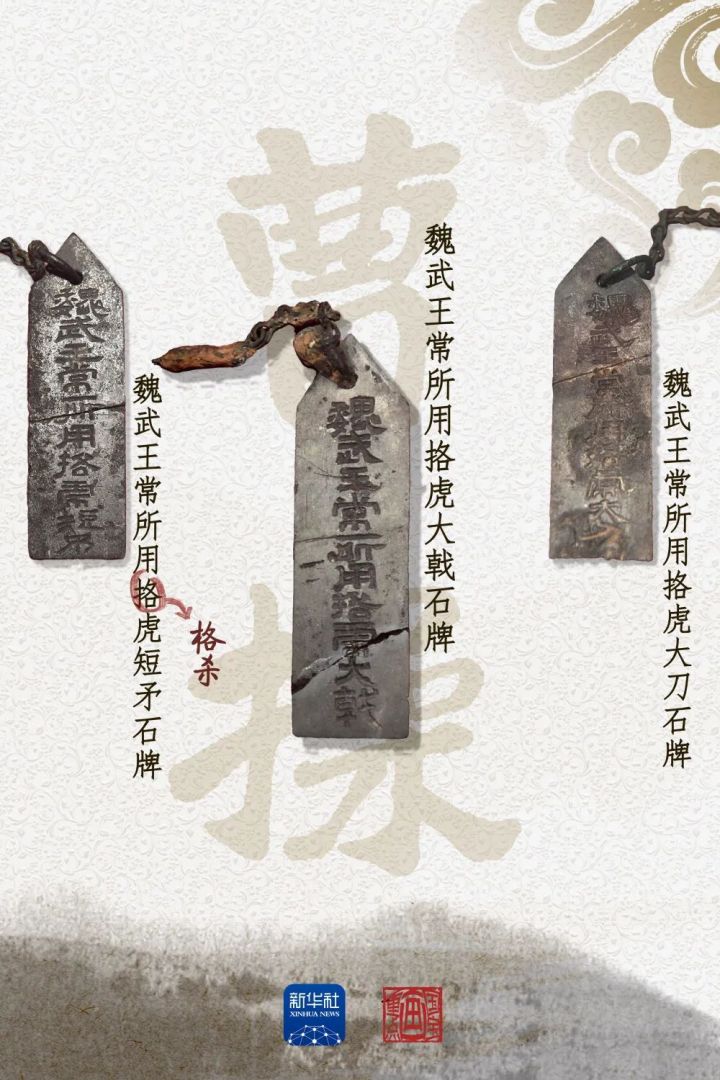 曹操
魏武王常所用挌虎短矛
魏武王常所用挌虎短矛石牌
格杀
魏武王常所用挌虎大戟
魏武王常所用挌虎大戟石牌
魏武王常所用挌虎大
魏武王常所用挌虎大刀石牌
新华社
XINHUA NEWS